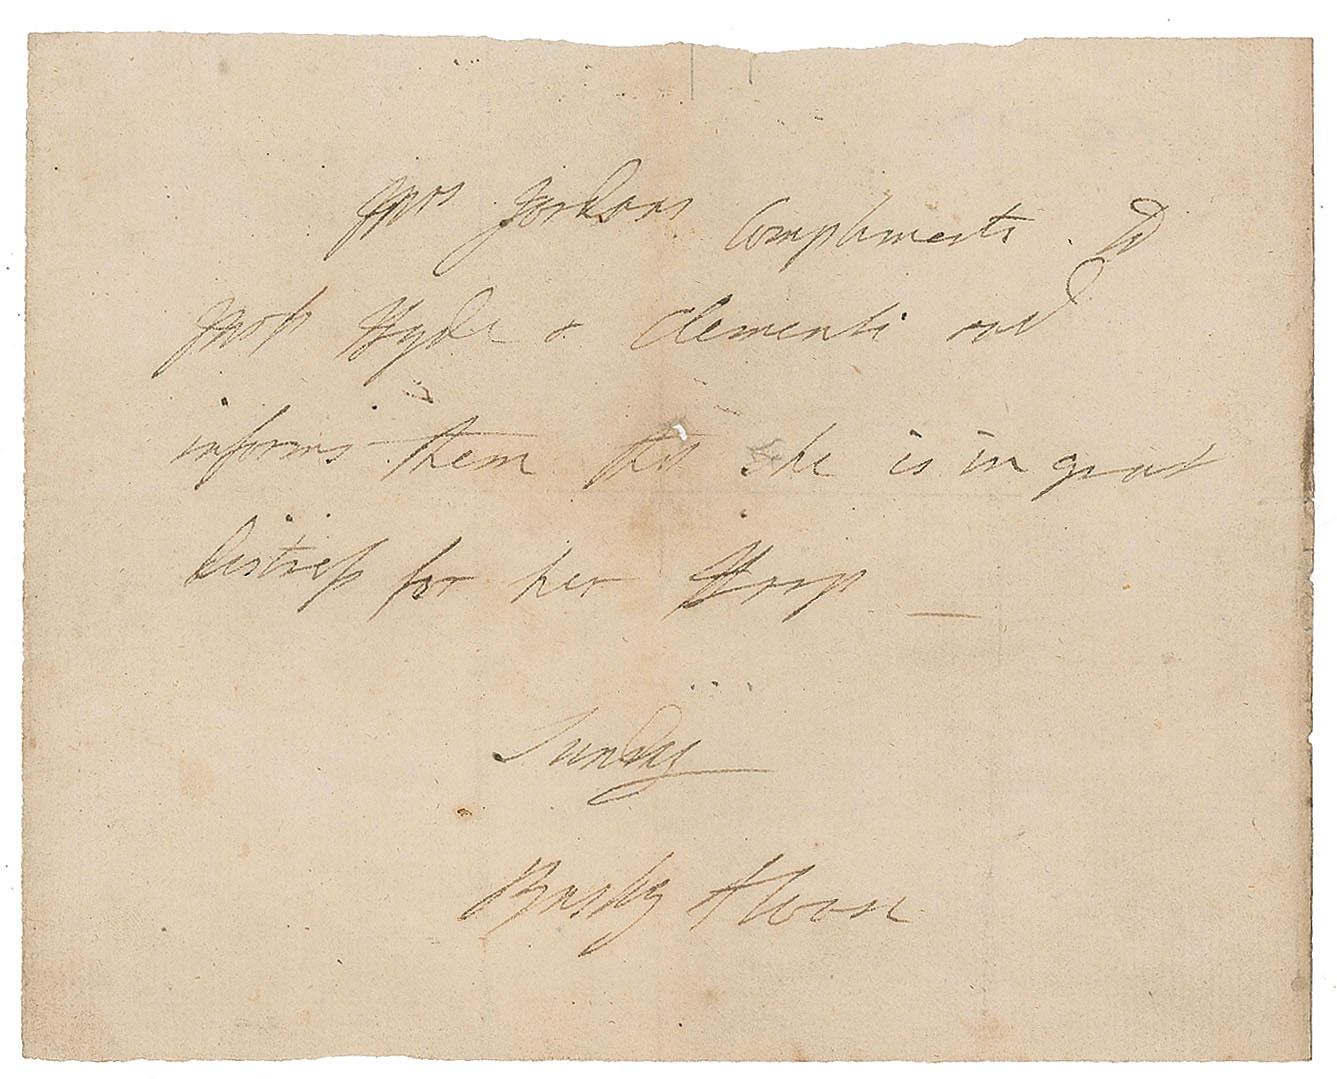 Mrs Jordans Compliments to
Messrs Hyde & Clementi and
informs them that she is in great
distress for her Harp —
Sunday
Bushy House